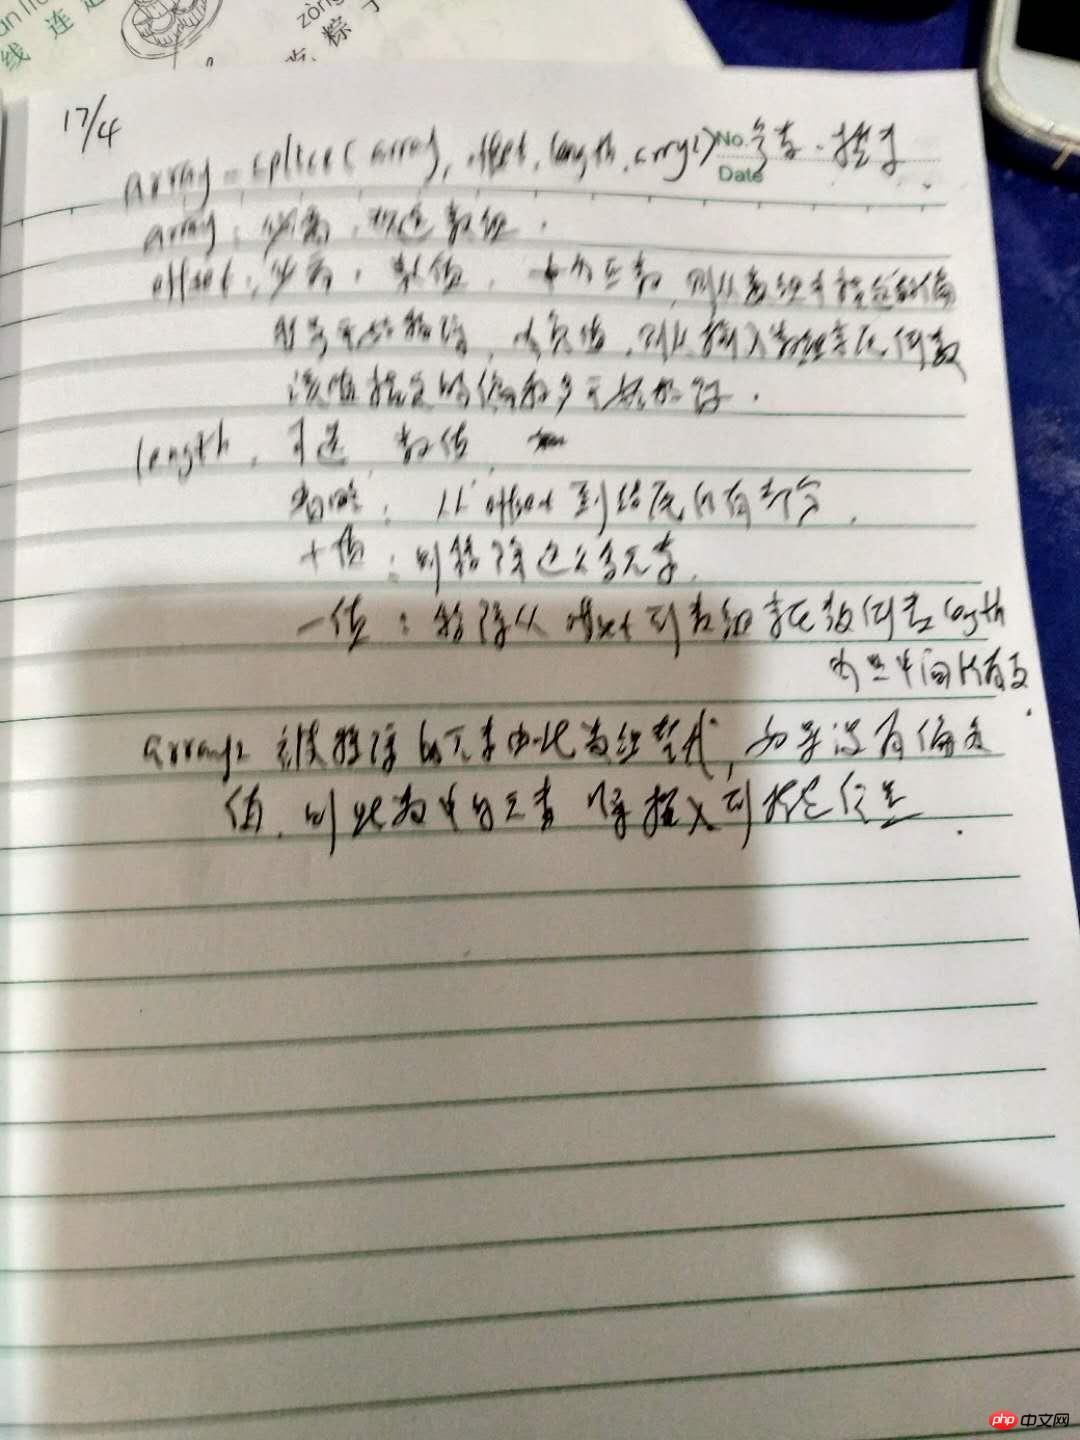 线 连
zòng
粽 子
17/4
array_splice(array, offset, length, array2)
No.
Date
array: 必需, 规定数组.
offset: 必需, 数值, 则从数组中指定的偏
移量开始移除, 则从输入数组末尾倒数
该值指定的偏移量开始移除.
length, 可选 数值
省略: 从 offset 到结尾所有部分.
+值: 则移除这么多元素.
一值: 移除从 offset 到数组末尾倒数 length
为止中间所有
array2 被移除的元素由此数组替代, 如果没有移除
值, 则此数中的元素将插入到指定位置.
php 中文网